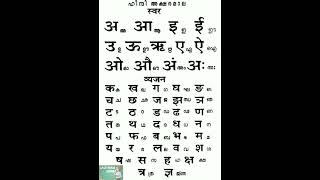 ഹിന്ദി അക്ഷരമാല
स्वर
अ അ आ ആ इ ഇ ई ഈ
उ ഉ ऊ ഊ ऋ ഋ ए ഏ ऐ ഐ
ओ ഓ औ ഔ अं അം अः അഃ
व्यंजन
क ക ख ഖ ग ഗ घ ഘ ङ ങ
च ച छ ഛ ज ജ झ ഝ ञ ഞ
ट ട ठ ഠ ड ഡ ढ ഢ ण ണ
त ത थ ഥ द ദ ध ധ न ന
प പ फ ഫ ब ബ भ ഭ म മ
य യ र ര ल ല व വ श ശ
ष ഷ स സ ह ഹ क्ष ക്ഷ
त्र ത്ര ज्ञ ജ്ഞ